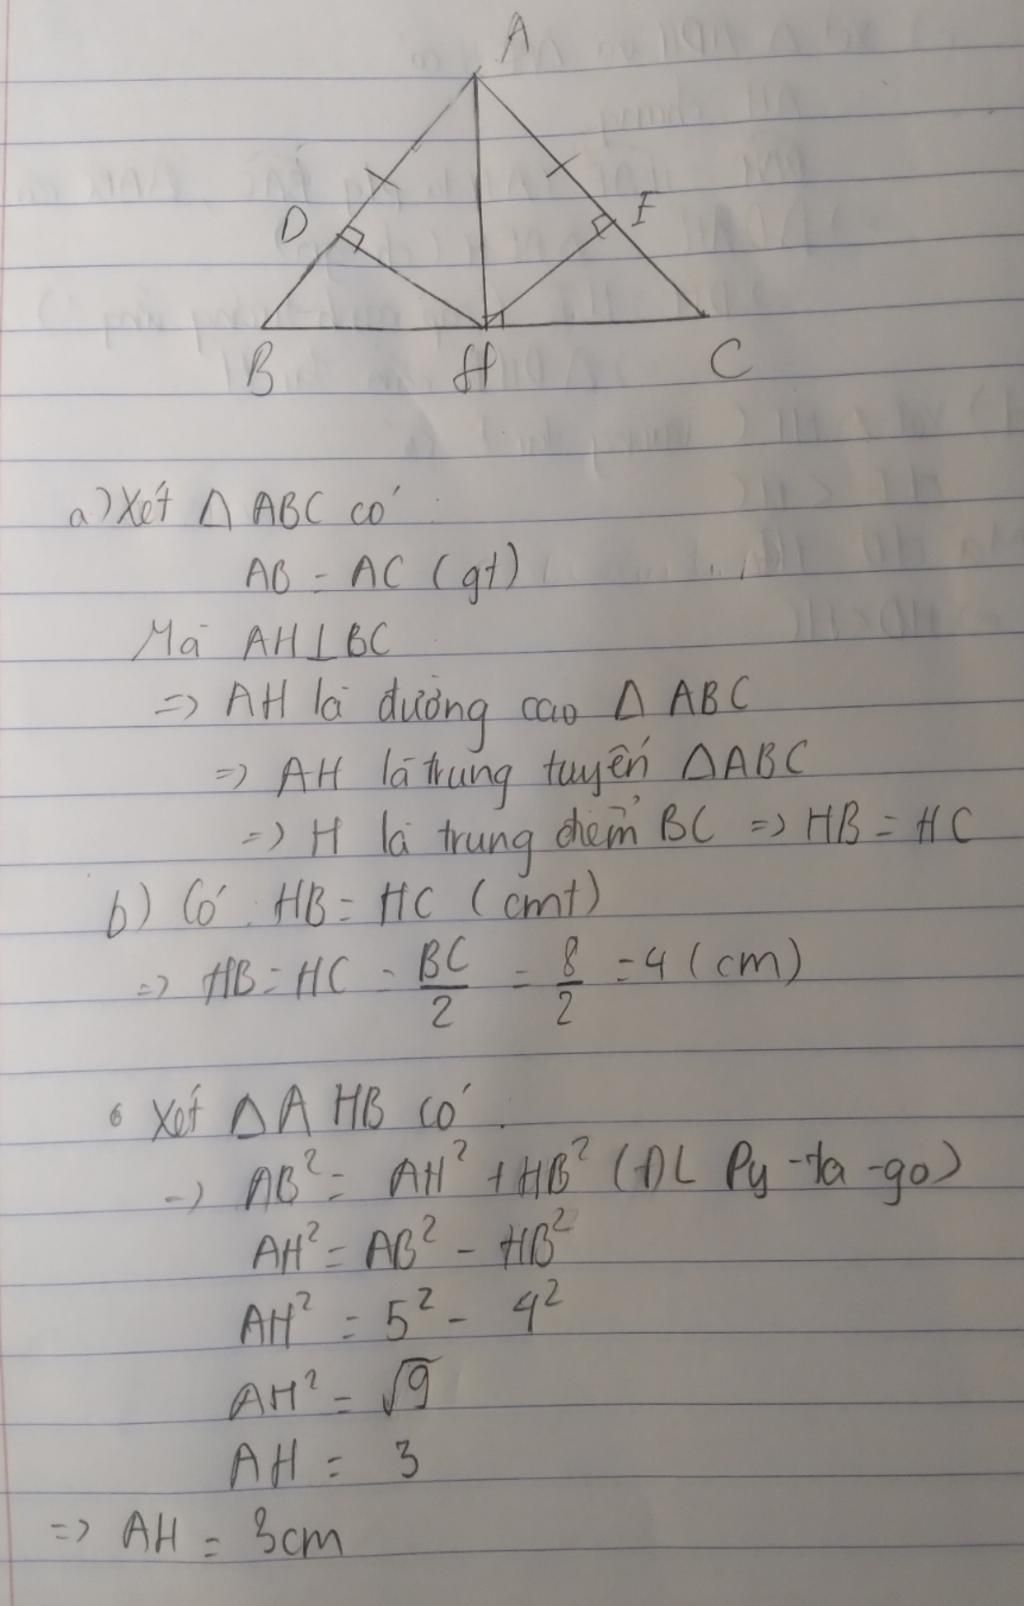 A
D
E
B
H
C
a) Xét Δ ABC có
AB = AC (gt)
Mà AH⊥BC
=> AH là đường cao Δ ABC
=> AH là trung tuyến ΔABC
=> H là trung điểm BC => HB = HC
b) Có: HB = HC (cmt)
=> HB = HC = BC/2 = 8/2 = 4 (cm)
Xét ΔAHB có
=> AB² = AH² + HB² (ĐL Py-ta-go)
AH² = AB² - HB²
AH² = 5² - 4²
AH² = √9
AH = 3
=> AH = 3cm